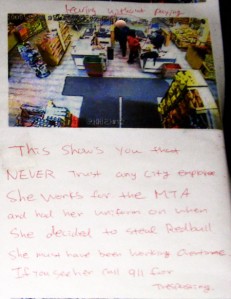 leaving without paying
This shows you that
NEVER Trust any City employee
She works for the MTA
and had her uniform on when
She decided to steal Redbull
She must have been working overtime.
If you see her call 911 for
Trespassing.